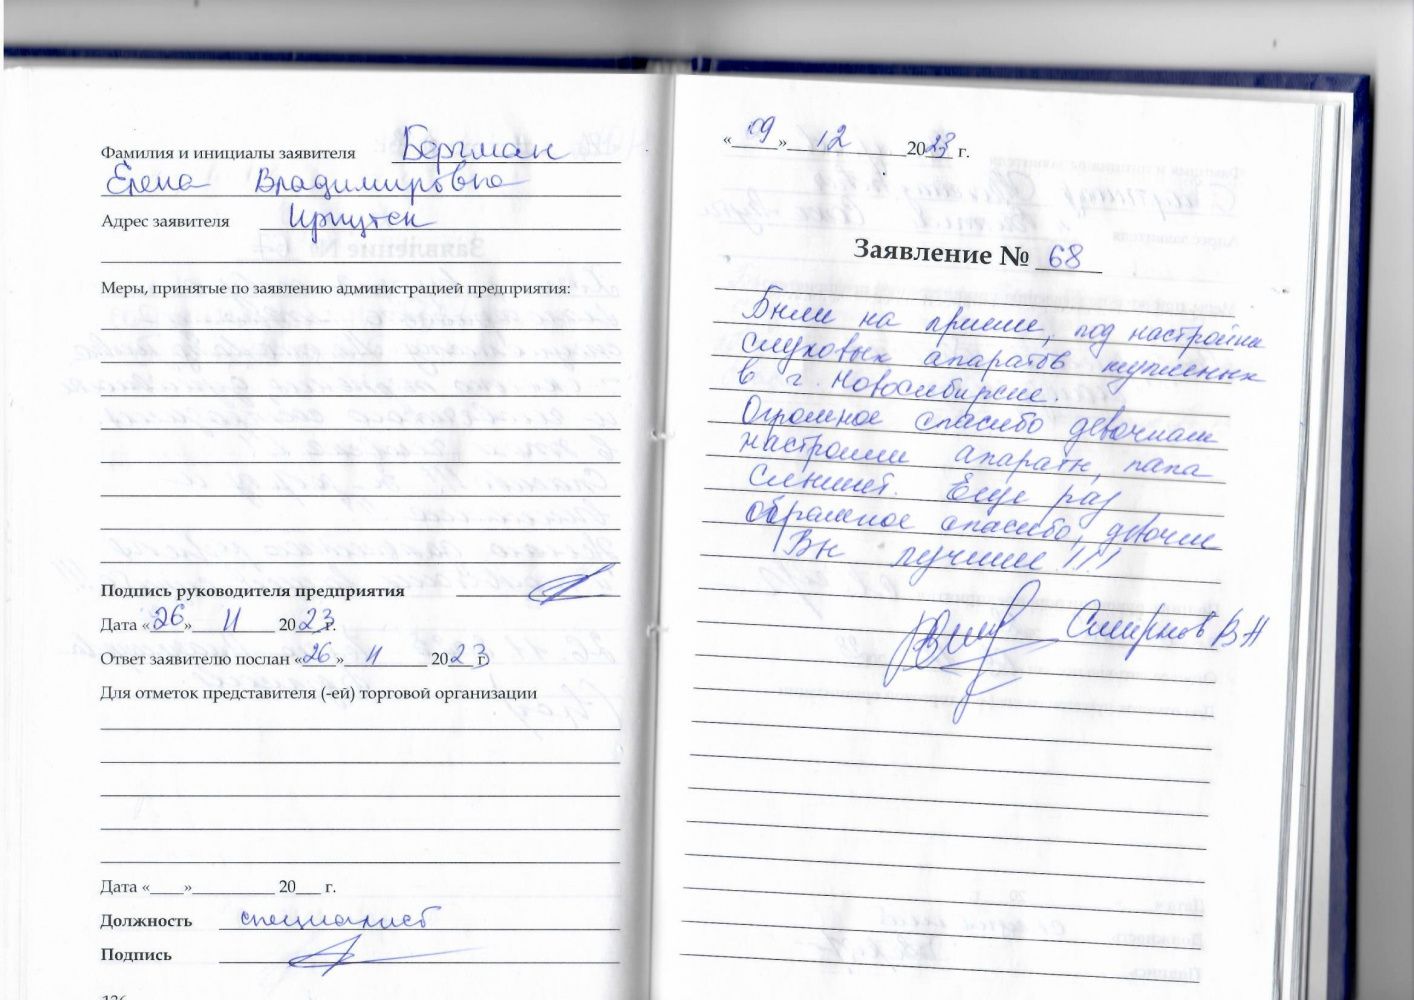 Фамилия и инициалы заявителя Бергман
Елена Владимировна
Адрес заявителя Иркутск
Меры, принятые по заявлению администрацией предприятия:
Подпись руководителя предприятия
Дата «26» 11 2023 г.
Ответ заявителю послан «26» 11 2023 г.
Для отметок представителя (-ей) торговой организации
Дата «____»__________ 20___ г.
Должность специалист
Подпись
126
«09» 12 2023 г.
Заявление № 68
Были на приеме, под настройки
слуховых апаратов купленных
в г. Новосибирске.
Огромное спасибо девочкам
настроили апараты, папа
слышит. Еще раз
огромное спасибо, девочки
Вы лучшие!!!
Смирнов В Н